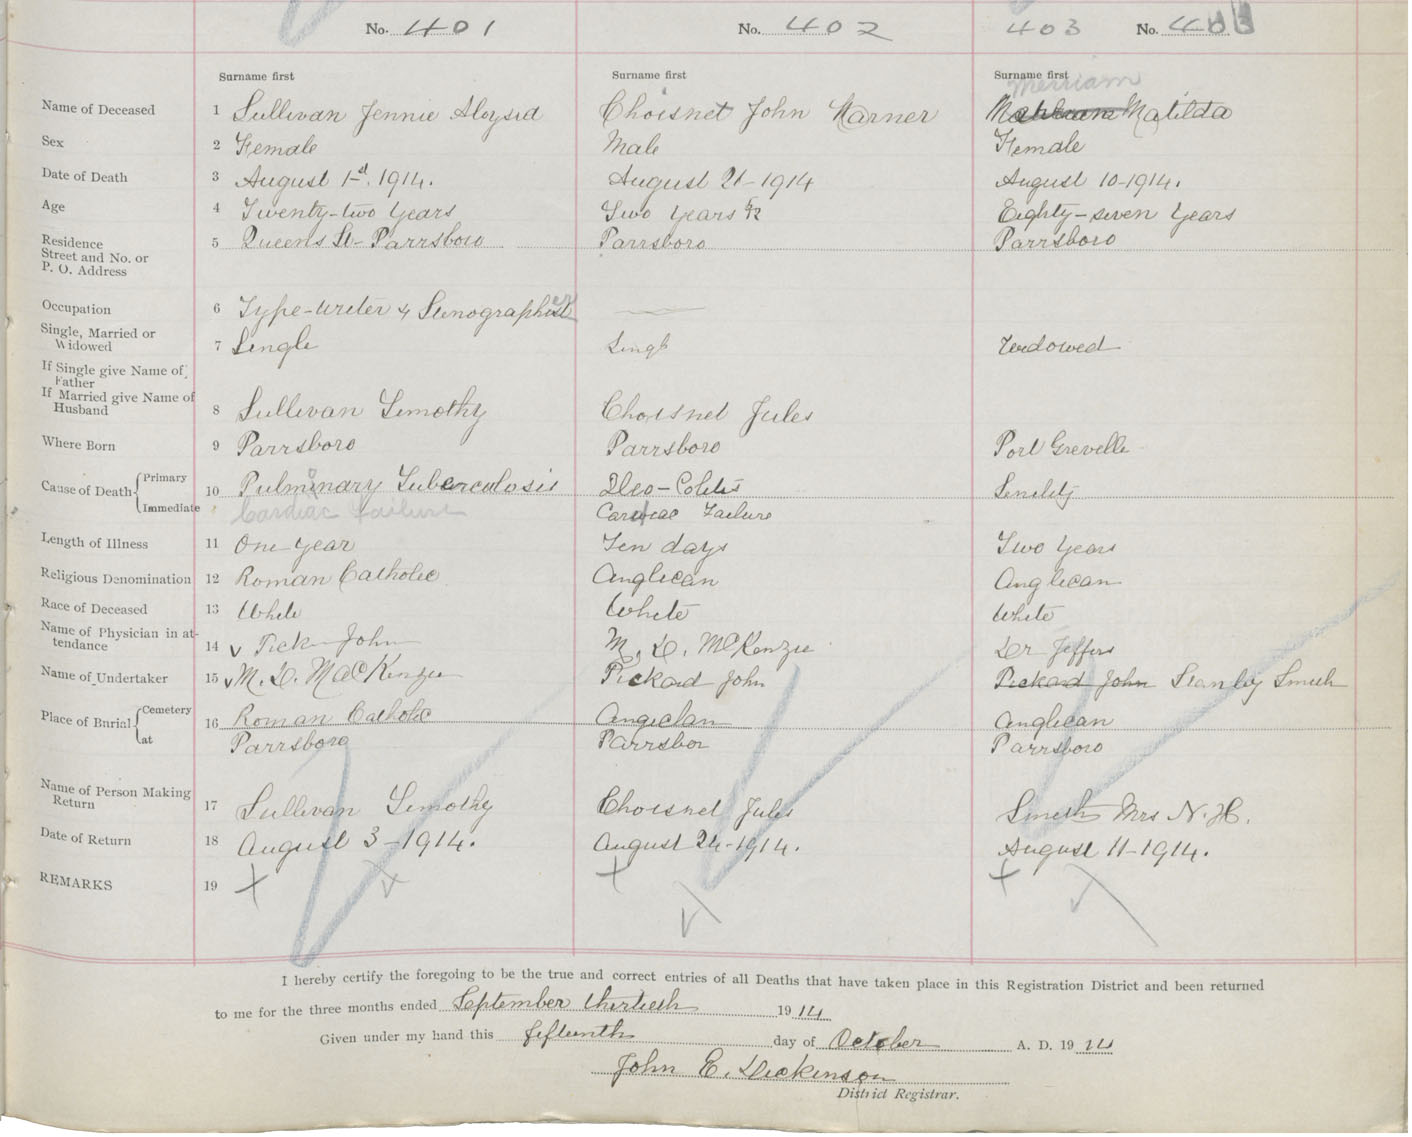 No. 401 No. 402 403 No. 403
Surname first Surname first Surname first
Merriam
Name of Deceased 1 Sullivan Jennie Aloysia Choisnet John Warner Matilda
Sex 2 Female Male Female
Date of Death 3 August 1st. 1914. August 21-1914 August 10-1914.
Age 4 Twenty-two Years Two Years Eighty-seven Years
Residence
Street and No. or
P. O. Address 5 Queens St- Parrsboro Parrsboro Parrsboro
Occupation 6 Type-writer & Stenographer
Single, Married or
Widowed 7 Single Single Widowed
If Single give Name of
Father
If Married give Name of
Husband 8 Sullivan Timothy Choisnet Jules
Where Born 9 Parrsboro Parrsboro Port Greville
Cause of Death Primary 10 Pulmonary Tuberculosis Ileo-Colitis Senility
Immediate Cardiac Failure Cardiac Failure
Length of Illness 11 One year Ten days Two Years
Religious Denomination 12 Roman Catholic Anglican Anglican
Race of Deceased 13 White White White
Name of Physician in at-
tendance 14 v Pick John M. D. McKenzie Dr Jeffers
Name of Undertaker 15 v M. D. MacKenzie Pickard John Pickard John Stanley Smith
Place of Burial Cemetery 16 Roman Catholic Angiclan Anglican
at Parrsboro Parrsbor Parrsboro
Name of Person Making
Return 17 Sullivan Timothy Choisnet Jules Smith Mrs N. H.
Date of Return 18 August 3-1914. August 24-1914. August 11-1914.
REMARKS 19
I hereby certify the foregoing to be the true and correct entries of all Deaths that have taken place in this Registration District and been returned
to me for the three months ended September thirtieth 1914
Given under my hand this fifteenth day of October A. D. 1914
John E. Dickinson
District Registrar.